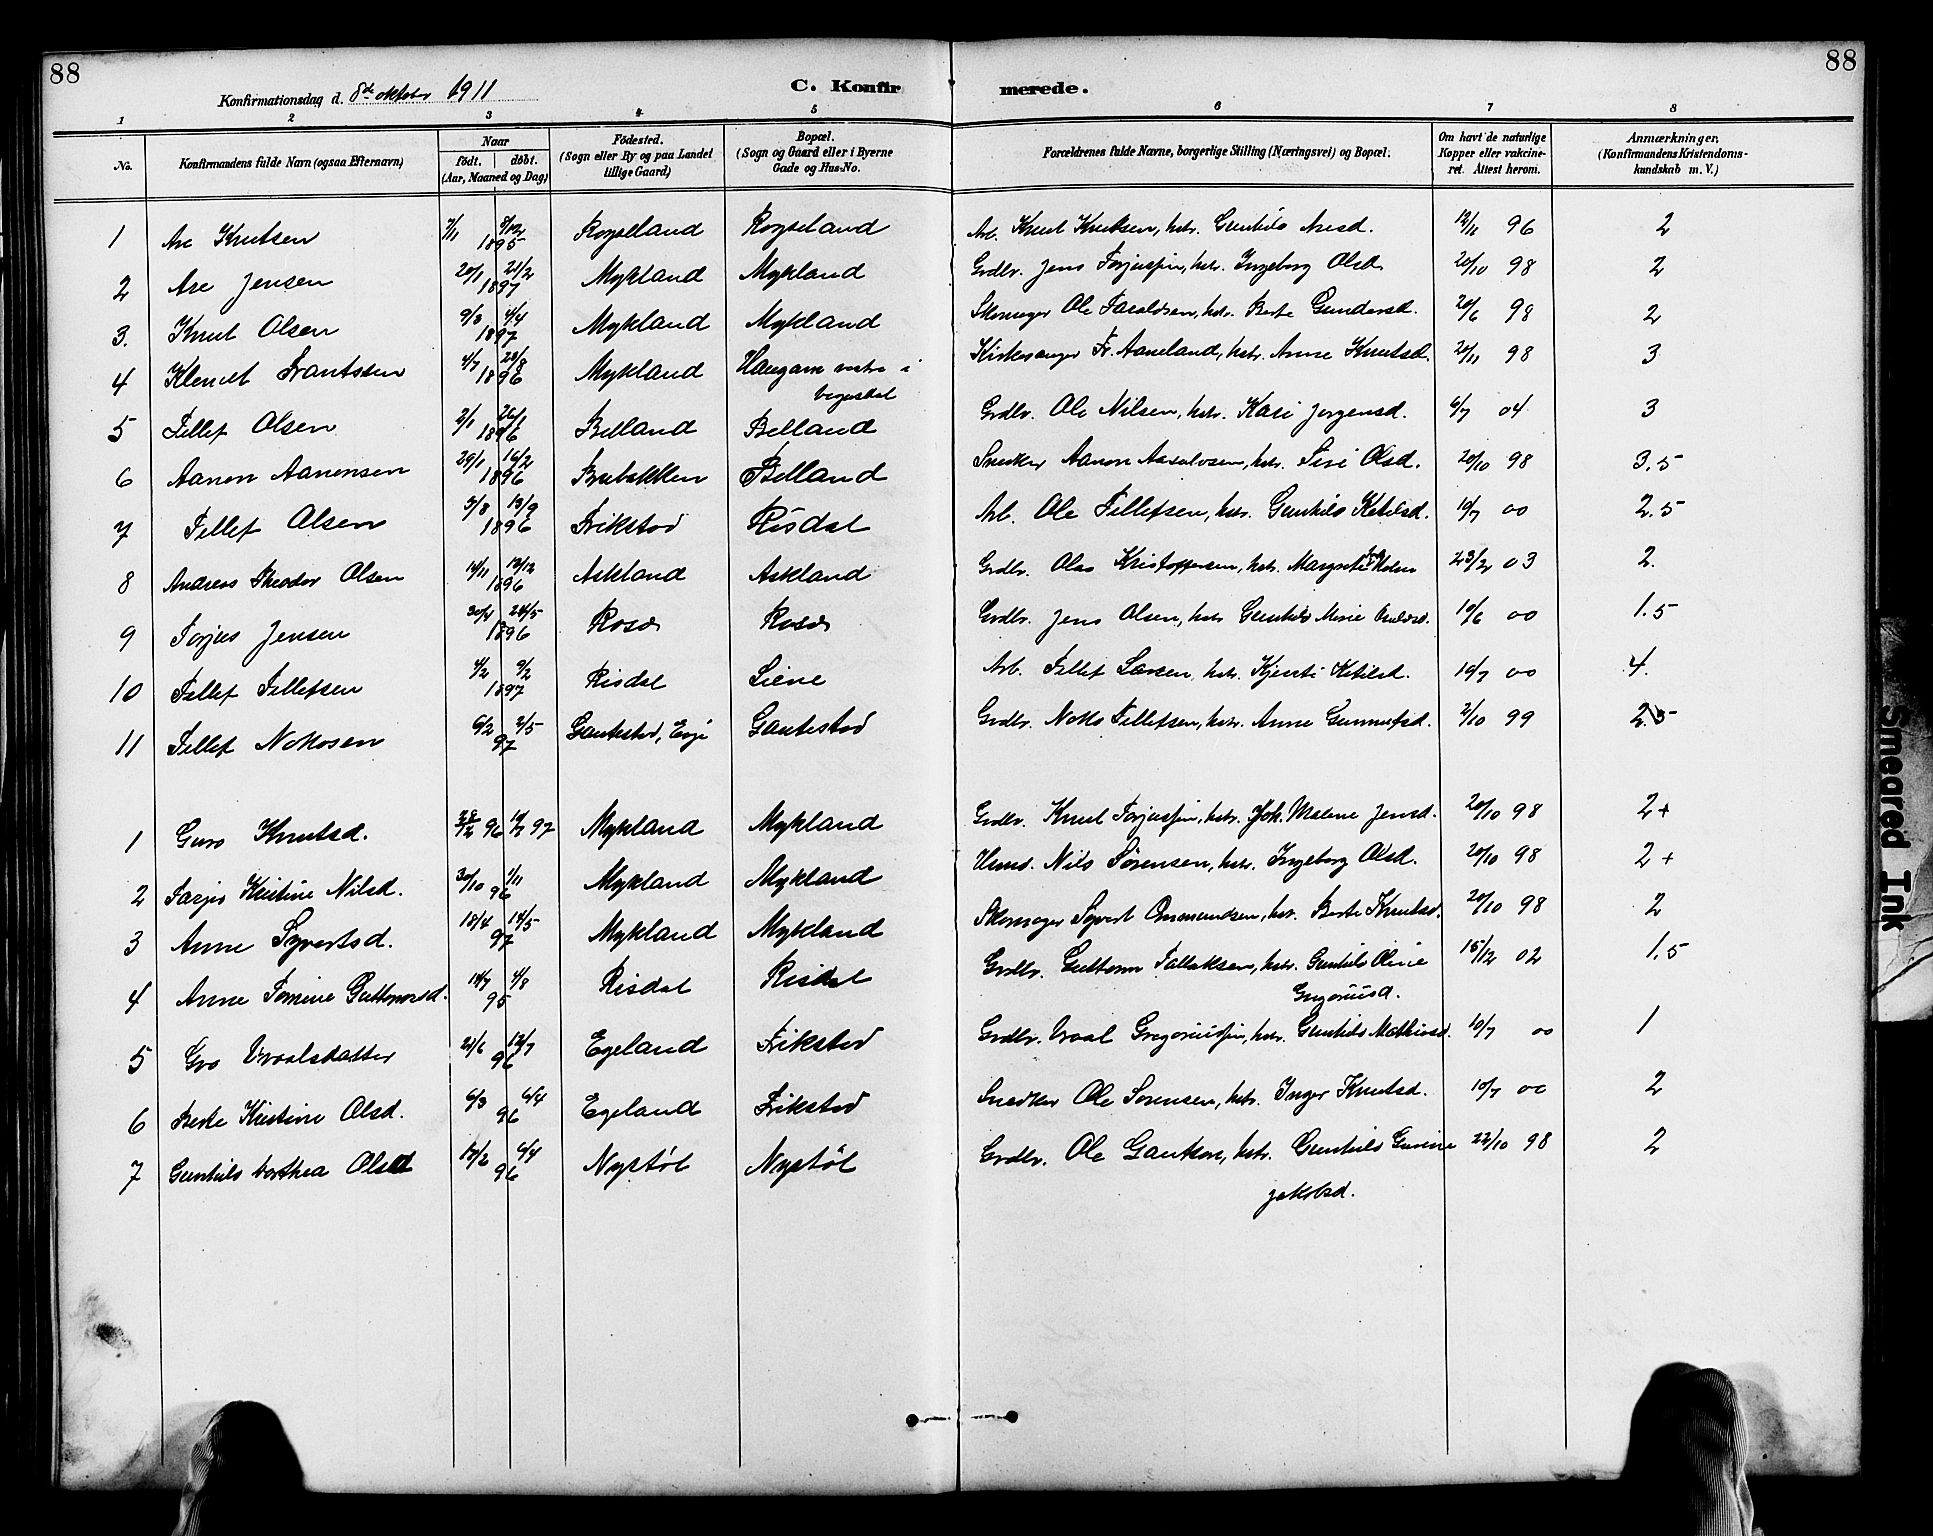 88
88
Konfirmationsdag d. 8de oktober 1911
C. Konfirmerede.
1 2 3 4 5 6 7 8
No.
Konfirmandens fulde Navn (ogsaa Efternavn)
Naar
født. døbt.
(Aar, Maaned og Dag)
Fødested.
(Sogn eller By og paa Landet
tillige Gaard)
Bopæl.
(Sogn og Gaard eller i Byerne
Gade og Hus-No.
Forældrenes fulde Navne, borgerlige Stilling (Næringsvei) og Bopæl.
Om havt de naturlige
Kopper eller vakcine-
ret. Attest herom.
Anmærkninger,
(Konfirmandens Kristendoms-
kundskab m. V.)
1 Are Knutsen 7/11 8/12 1895 Røyseland Røyseland Arb. Knut Knutsen, hstr. Gunhild Aresd. 12/11 96 2
2 Are Jensen 20/1 21/2 1897 Mykland Mykland Grdbr. Jens Torjusson, hstr. Ingeborg Olsd. 20/10 98 2
3. Knut Olsen 9/3 4/4 1897 Mykland Mykland Skomager Ole Taraldsen, hstr. Berte Gundersd. 20/6 98 2
4 Klemet Frantssen 4/7 28/8 1896 Mykland Haugann vestre i
Vegusdal Kirkesanger Fr. Aaneland, hstr. Anne Knutsd. 20/11 98 3
5 Tellef Olsen 2/1 26/1 1896 Belland Belland Grdbr. Ole Nilsen, hstr. Kari Jørgensd. 6/7 04 3
6 Aanon Aanonsen 29/1 16/2 1896 Brubakken Belland Snedker Aanon Aasulvsen, hstr. Siri Olsd. 20/10 98 3.5
7 Tellef Olsen 3/8 13/9 1896 Frikstad Risdal Arb. Ole Tellefsen, hstr. Gunhild Ketilsd. 10/7 00 2.5
8 Andreas Theodor Olsen 14/11 13/12 1896 Askland Askland Grdbr. Olav Kristoffersen, hstr. Margrete 23/2 03 2.
9 Torjus Jensen 24/5 1896 Rosø Rosø Grdbr. Jens Olsen, hstr. Gunhild Marie 10/6 00 1.5
10 Tellef Tellefsen 4/2 9/2 1897 Risdal Liene Arb. Tellef Larsen, hstr. Kjersti Ketilsd. 10/7 00 4.
11 Tellef Notosen 6/2 2/5 97 Gautestad, Evje Gautestad Grdbr. Noto Tellefsen, hstr. Anne Gunnufsd. 2/10 99 2.5
1 Guro Knutsd. 28/12 96 97 Mykland Mykland Grdbr. Knut Torjusson, hstr. Joh. Malene Jensd. 20/10 98 2+
2 Tarjer Kristine Nilsd. 30/10 1/11 96 Mykland Mykland Husmd. Nils Sørensen, hstr. Ingeborg Olsd. 20/10 98 2+
3 Anne Syvertsd. 18/4 18/5 97 Mykland Mykland Skomager Syvert Ommundsen, hstr. Berte Knutsd. 20/10 98 2
4 Anne Tomine Guttormsd. 14/7 4/8 95 Risdal Risdal Grdbr. Guttorm Tallaksen, hstr. Gunhild Oline
Gregoriusd. 15/12 02 1.5
5 Gro Vraalsdatter 21/6 12/7 96 Egeland Frikstad Grdbr. Vraal Gregoriusson, hstr. Gunhild Mathiasd. 10/7 00 1
6 Berte Kristine Olsd. 6/3 6/4 96 Egeland Frikstad Snedker Ole Sørensen, hstr. Inger Knutsd. 10/7 00 2
7 Gunhild Dorthea Olsd 12/2 6/4 96 Nystøl Nystøl Grdbr. Ole Gautson, hstr. Gunhild Gurine
Jakobsd. 22/10 98 2
Smeared Ink